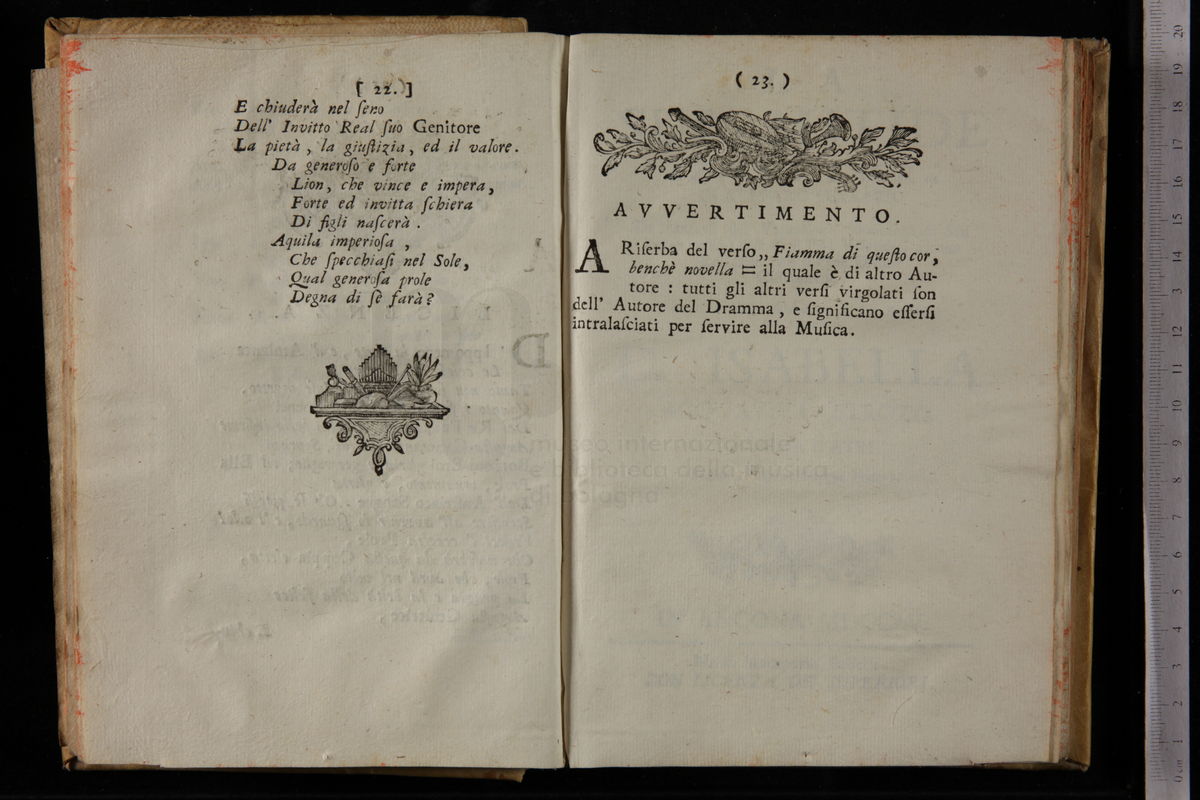 [ 22. ]
E chiuderà nel ſeno
Dell' Invitto Real ſuo Genitore
La pietà, la giuſtizia, ed il valore.
Da generoſo e forte
Lion, che vince e impera,
Forte ed invitta ſchiera
Di figli naſcerà.
Aquila imperioſa,
Che ſpecchiaſi nel Sole,
Qual generoſa prole
Degna di ſè farà?
( 23. )
AVVERTIMENTO.
A Riſerba del verſo,, Fiamma di queſto cor,
benchè novella = il quale è di altro Au-
tore : tutti gli altri verſi virgolati ſon
dell' Autore del Dramma, e ſignificano eſſerſi
intralaſciati per ſervire alla Muſica.
museo internazionale
e biblioteca della musica
di bologna
0 cm 1 2 3 4 5 6 7 8 9 10 11 12 13 14 15 16 17 18 19 20